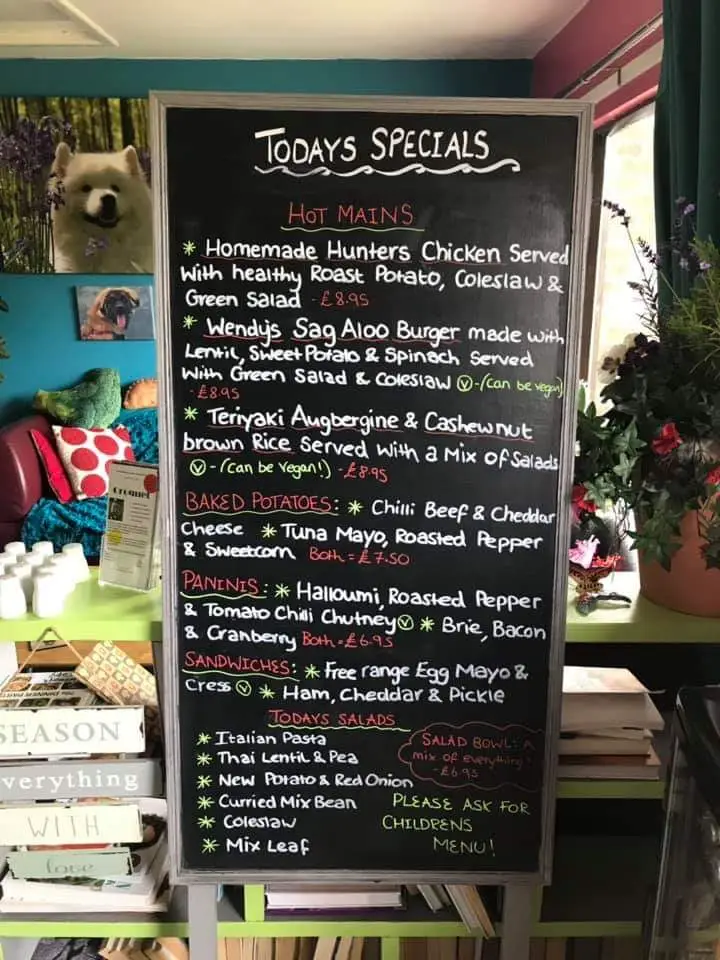 TODAYS SPECIALS
HOT MAINS
* Homemade Hunters Chicken Served
with healthy Roast Potato, Coleslaw &
Green Salad - £8.95
* Wendy's Sag Aloo Burger made with
Lentil, Sweet Potato & Spinach Served
With Green Salad & Coleslaw Ⓥ - (can be vegan)
- £8.95
* Teriyaki Augbergine & Cashewnut
brown Rice Served with a Mix of Salads
Ⓥ - (can be Vegan!) - £8.95
BAKED POTATOES: * Chilli Beef & Cheddar
Cheese * Tuna Mayo, Roasted Pepper
& Sweetcorn Both = £7.50
PANINIS: * Halloumi, Roasted Pepper
& Tomato Chilli Chutney Ⓥ * Brie, Bacon
& Cranberry Both = £6.95
SANDWICHES: * Free range Egg Mayo &
Cress Ⓥ * Ham, Cheddar & Pickle
TODAYS SALADS
* Italian Pasta
* Thai Lentil & Pea
* New Potato & Red Onion
* Curried Mix Bean
* Coleslaw
* Mix Leaf
SALAD BOWL: A
mix of everything!
- £6.95
PLEASE ASK FOR
CHILDRENS
MENU!
Croquet
SEASON
everything
WITH
love